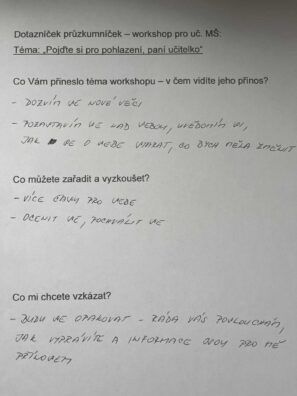 Dotazníček průzkumníček – workshop pro uč. MŠ:
Téma: „Pojďte si pro pohlazení, paní učitelko“
Co Vám přineslo téma workshopu – v čem vidíte jeho přínos?
- DOZVÍM SE NOVÉ VĚCI
- POZASTAVÍM SE NAD SEBOU, UVĚDOMÍM SI,
JAK SE O SEBE STARAT, CO BYCH MĚLA ZMĚNIT
Co můžete zařadit a vyzkoušet?
- VÍCE ČASU PRO SEBE
- OCENIT SE, POCHVÁLIT SE
Co mi chcete vzkázat?
- BUDU SE OPAKOVAT - RÁDA VÁS POSLOUCHÁM,
JAK VYPRÁVÍTE A INFORMACE JSOU PRO MĚ
PŘÍNOSEM